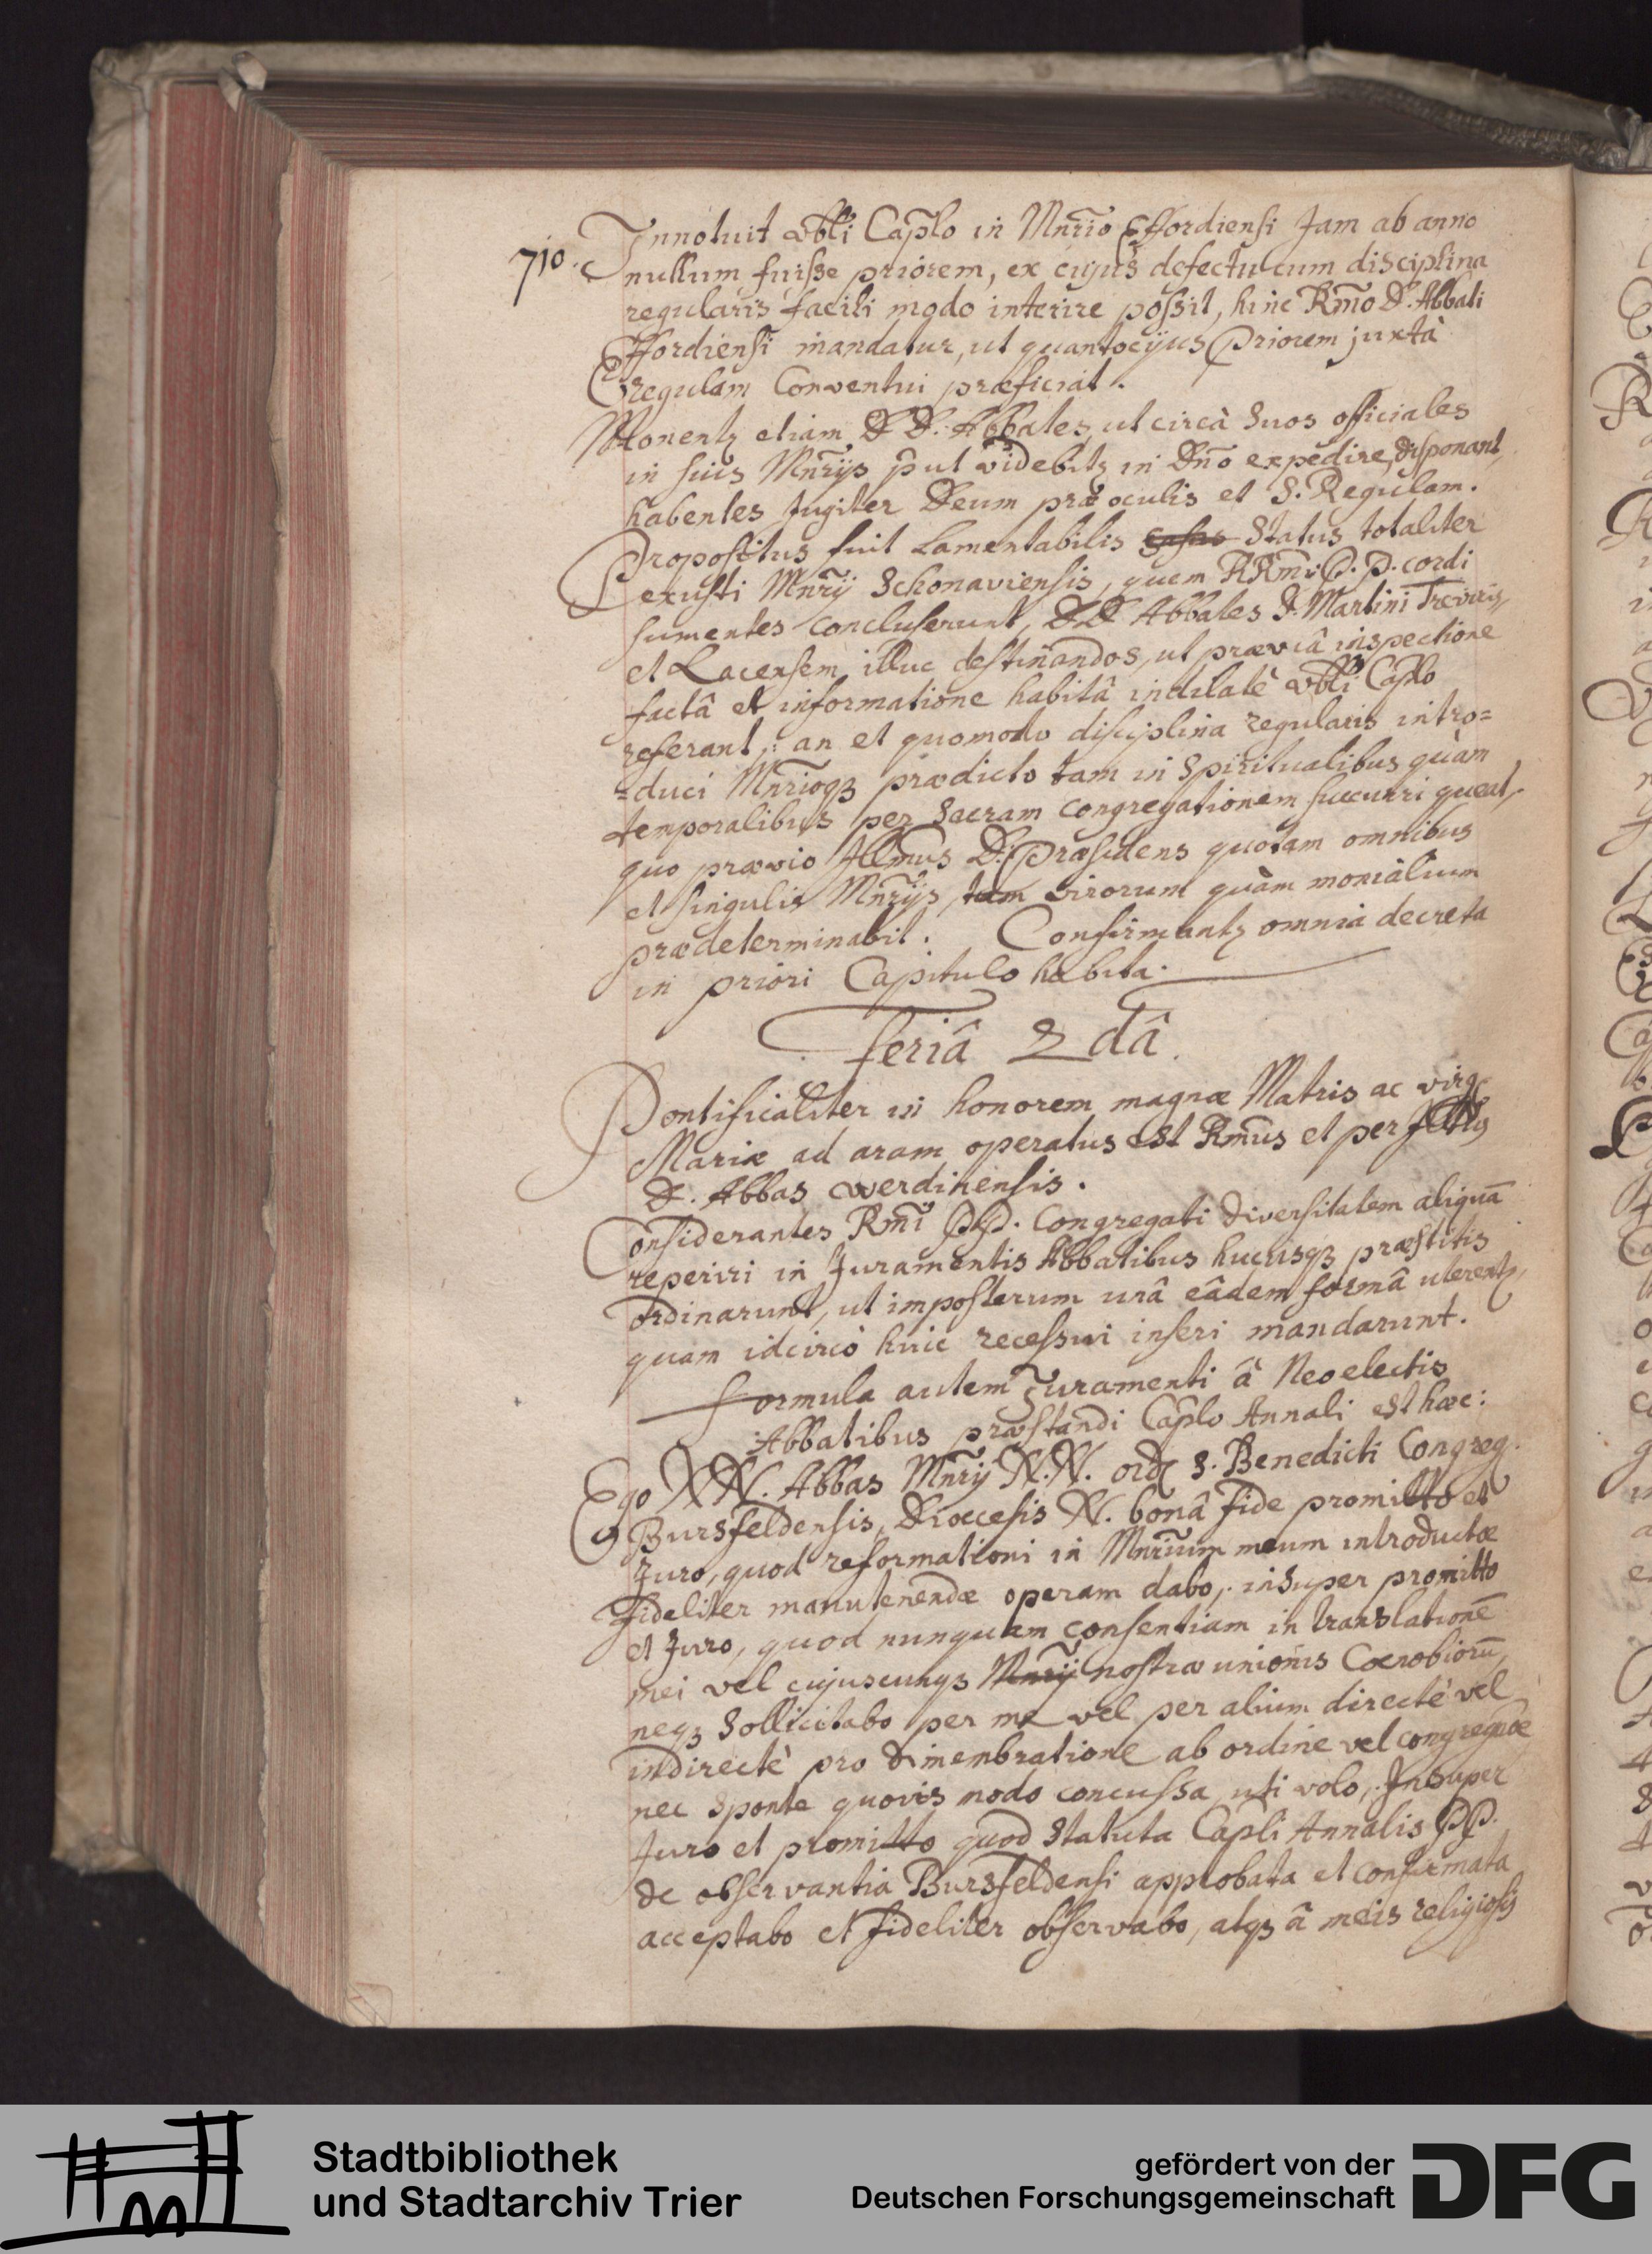 710.
Innotuit vbli Caplo in Mnrio Effordiensi Jam ab anno
nullum fuisse priorem, ex cujus defectu cum disciplina
regularis facili modo interire possit, hinc Rmo D. Abbati
Effordiensi mandatur, ut quantocijus Priorem juxtà
regulam Conventui præficiat.
Monentz etiam DD. Abbates, ut circà suos officiales
in suis Mnrijs put videbitz in Dno expedire, disponant,
habentes Jugiter Deum præ oculis et S. Regulam.
Propositus fuit Lamentabilis casus Status totaliter
exusti Mnrij Schonaviensis, quem RRmi P.P. cordi
sumentes concluserunt, DD Abbates S. Martini Treviris,
et Lacensem illuc destinandos, ut præviâ inspectione
factâ et informatione habitâ indilatè vbli Caplo
referant, an et quomodo disciplina regularis intro=
=duci Mnrioqz prædicto tam in Spiritualibus quàm
temporalibus per Sacram congregationem succurri queat,
quo prævio Illmus D. Præsidens quotam omnibus
et singulis Mnrijs, tam virorum quàm monialium
prædeterminabit. Confirmantz omnia decreta
in priori Capitulo habita.
feriâ 2dâ.
Pontificaliter in honorem magnæ Matris ac virg
Mariæ ad aram operatus est Rmus et per Illtis
D. Abbas Werdinensis.
Considerantes Rmi PP. Congregati diversitatem aliquā
reperiri in Juramentis Abbatibus hucusqz præstitis
ordinarunt, ut imposterum unâ eâdem formâ uterentz,
quam idcircò huic recessui inseri mandarunt.
formula autem Juramenti â Neoelectis
Abbatibus præstandi Caplo Annali est hæc:
Ego NN. Abbas Mnrij N.N. ord S. Benedicti Congreg.
Bursfeldensis, Dioecesis N. bonâ fide promitto et
Juro, quod reformationi in Mnrium meum introductæ
fideliter manutenendæ operam dabo, insuper promitto
et Juro, quod nunquam consentiam in translationē
mei vel cujuscunqz Mnrij nostræ unionis Coenobiorū,
neqz Sollicitabo per me vel per alium directè vel
indirectè pro dimembratione ab ordine vel congregnōe
nec sponte quovis modo concussa uti volo, Insuper
Juro et promitto quod Statuta Capli Annalis PP.
de observantia Bursfeldensi approbata et confirmata
acceptabo et fideliter observabo, atqz â meis religiosis
Stadtbibliothek
und Stadtarchiv Trier
gefördert von der
Deutschen Forschungsgemeinschaft
DFG